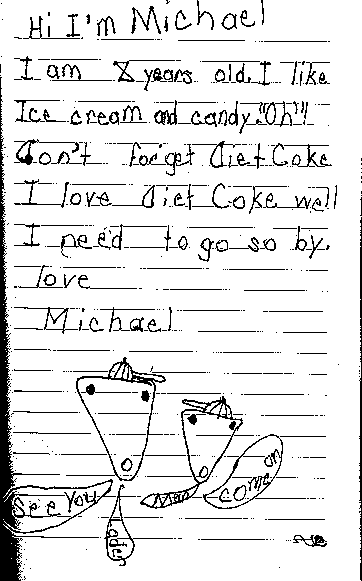 Hi I'm Michael
I am 8 years old. I like
Ice cream and candy."Oh"!
don't forget diet Coke
I love diet Coke well
I need to go so by.
love
Michael
See You
Lader
Man
come on